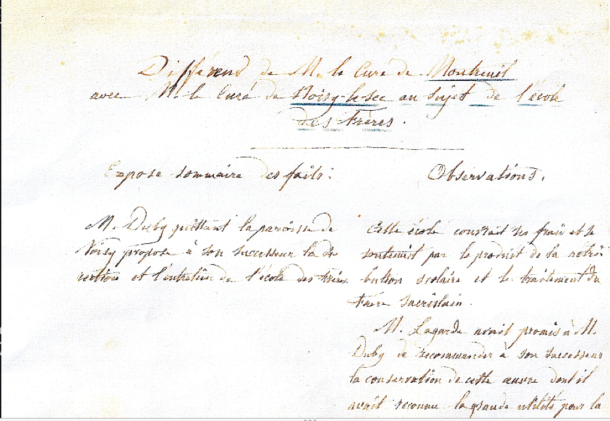 Différend de M. le Curé de Montreuil
avec M. le Curé de Noisy-le-Sec au sujet de l'école
des Frères.
Exposé sommaire des faits:
Observations.
M. Duby quittant la paroisse de
Noisy propose à son successeur la di
rection et l'entretien de l'école des frères
Cette école couvrait ses frais et se
soutenait par le produit de la rétri
bution scolaire et le traitement du
Frère sacristain.
M. Lagarde avait promis à M.
Duby de recommander à son successeur
la conservation de cette œuvre dont il
avait reconnu la grande utilité pour la